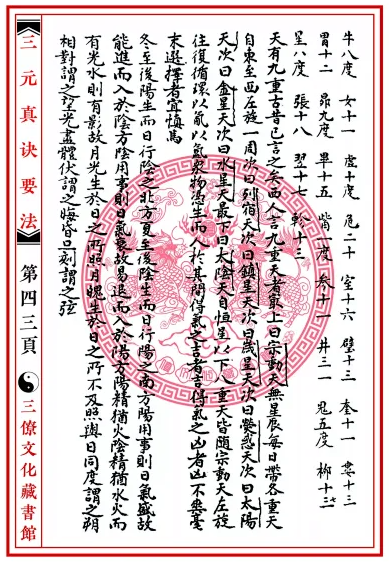 牛八度　女十一　虛十度　危二十　室十六　壁十三　奎十一　婁十三
胃十二　昴九度　畢十五　觜一度　參十一　井三一　鬼五度　柳十三
星八度　張十八　翌十七　軫十三
天有九重古昔已言之矣西人言九重天者最上曰宗動天無星辰每日帶各重天
自東至西左旋一周次曰列宿天次曰鎮星天次曰歲星天次曰熒惑天次曰太陽
天次曰金星天次曰水星天最下曰太陰天自恒星以下八重天皆隨宗動天左旋
往復循環以氣以氣衆物憑生而人於其間得氣之吉者吉得氣之凶者凶不無毫
末選擇者宜慎焉
冬至後陽生而日行陰之北方夏至後陰生而日行陽之南方陽用事則日氣盛故
能進而入於陰方陰用事則日氣衰故易退而入於陽方陽精猶火陰精猶水火而
有光水則有影故月光生於日之所照月魄生於日之所不及照與日同度謂之朔
相對謂之望光盡體伏謂之晦昏旦刻謂之弦
三元真诀要法
第四三頁
三僚文化藏書館